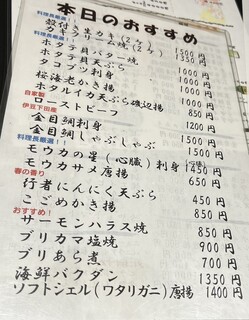 本日のおすすめ
料理長厳選！
ホタテ貝バター焼 1350円
ホタテ天ぷら
タコブツ刺身 1000円
桜海老かき揚 1000円
ホタルイカ天ぷら磯辺揚 1000円
自家製
ローストビーフ 850円
伊豆下田産
金目鯛刺身 1200円
金目鯛しゃぶしゃぶ 1500円
料理長厳選！
モウカの星(心臓)刺身 1450円
モウカサメ唐揚 650円
春の香り
行者にんにく天ぷら 450円
こごめかき揚 850円
おすすめ！
サーモンハラス焼 850円
ブリカマ塩焼 900円
ブリあら煮 700円
海鮮バクダン 1350円
ソフトシェル(ワタリガニ)唐揚 1400円